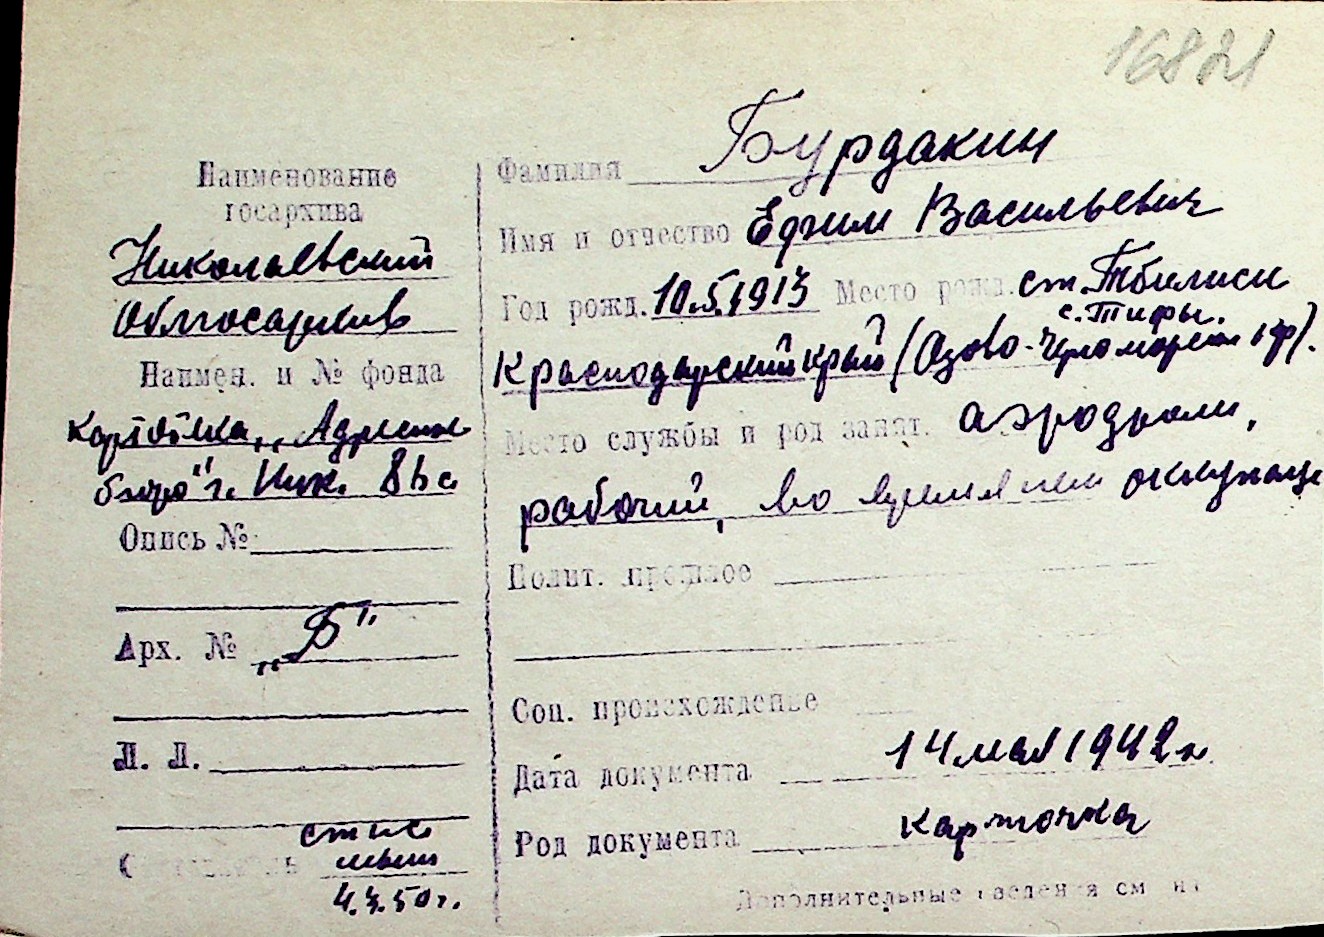 16821
Наименование
госархива
Николаевский
Облгосархив
Наимен. и № фонда
картотека „Адресное
бюро" г. Ник.
Опись №
Арх. № „Б"
Л. Л.
Составитель
4. 50 г.
Фамилия Бурдакин
Имя и отчество Ефим Васильевич
Год рожд. 10.5.1913 Место рожд. ст. Тбилиси
с. Тифы.
Краснодарский край (Азово-Черноморск
Место службы и род занят. аэродром,
рабочий, во время нем оккупаци
Полит. прошлое
Соц. происхождение
Дата документа 14 мая 1942 г.
Род документа карточка
Дополнительные сведения см на